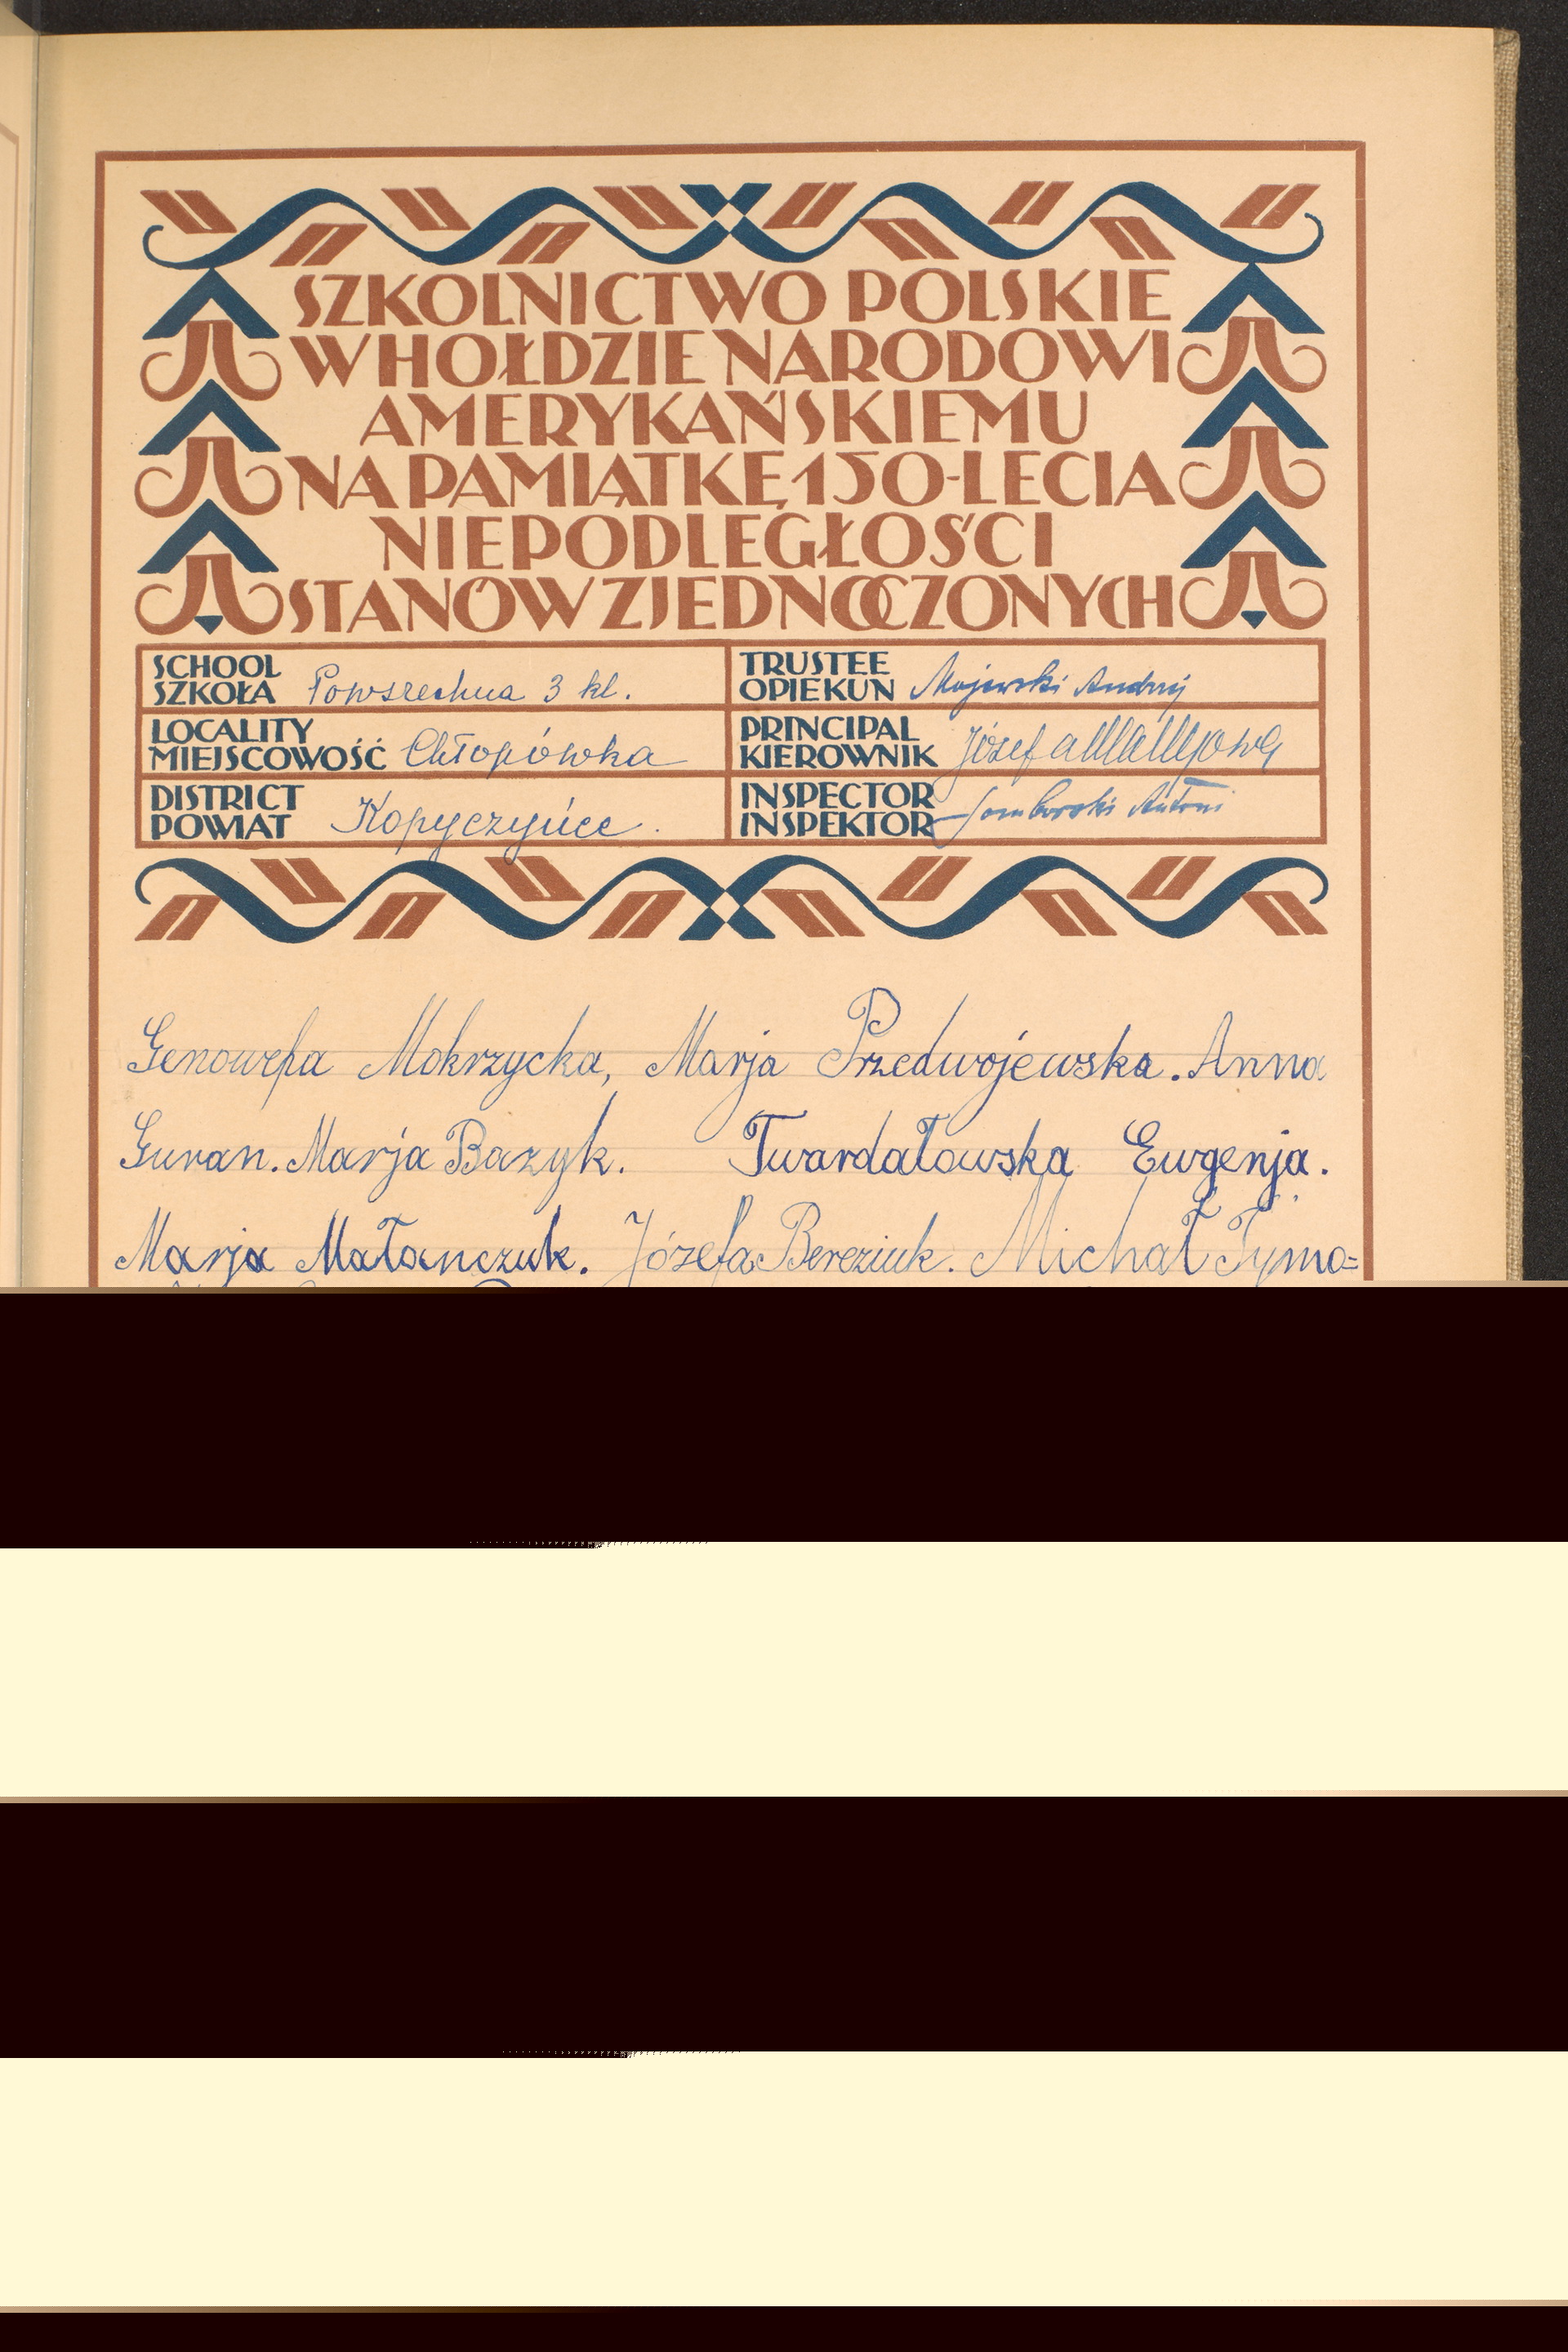 SZKOLNICTWO POLSKIE
W HOŁDZIE NARODOWI
AMERYKAŃSKIEMU
NA PAMIĄTKĘ 150-LECIA
NIEPODLEGŁOŚCI
STANÓW ZJEDNOCZONYCH
SCHOOL
SZKOŁA Powszechna 3 kl.
LOCALITY
MIEJSCOWOŚĆ Chłopówka
DISTRICT
POWIAT Kopyczyńce.
TRUSTEE
OPIEKUN Majewski Andrzej
PRINCIPAL
KIEROWNIK Józef
INSPECTOR
INSPEKTOR Antoni
Genowefa Mokrzycka, Marja Przedwojewska. Anna
Guran. Marja Bazyk. Twardałowska Ewgenja.
Marja Małanczuk. Józefa Bereziuk. Michał Tymo=